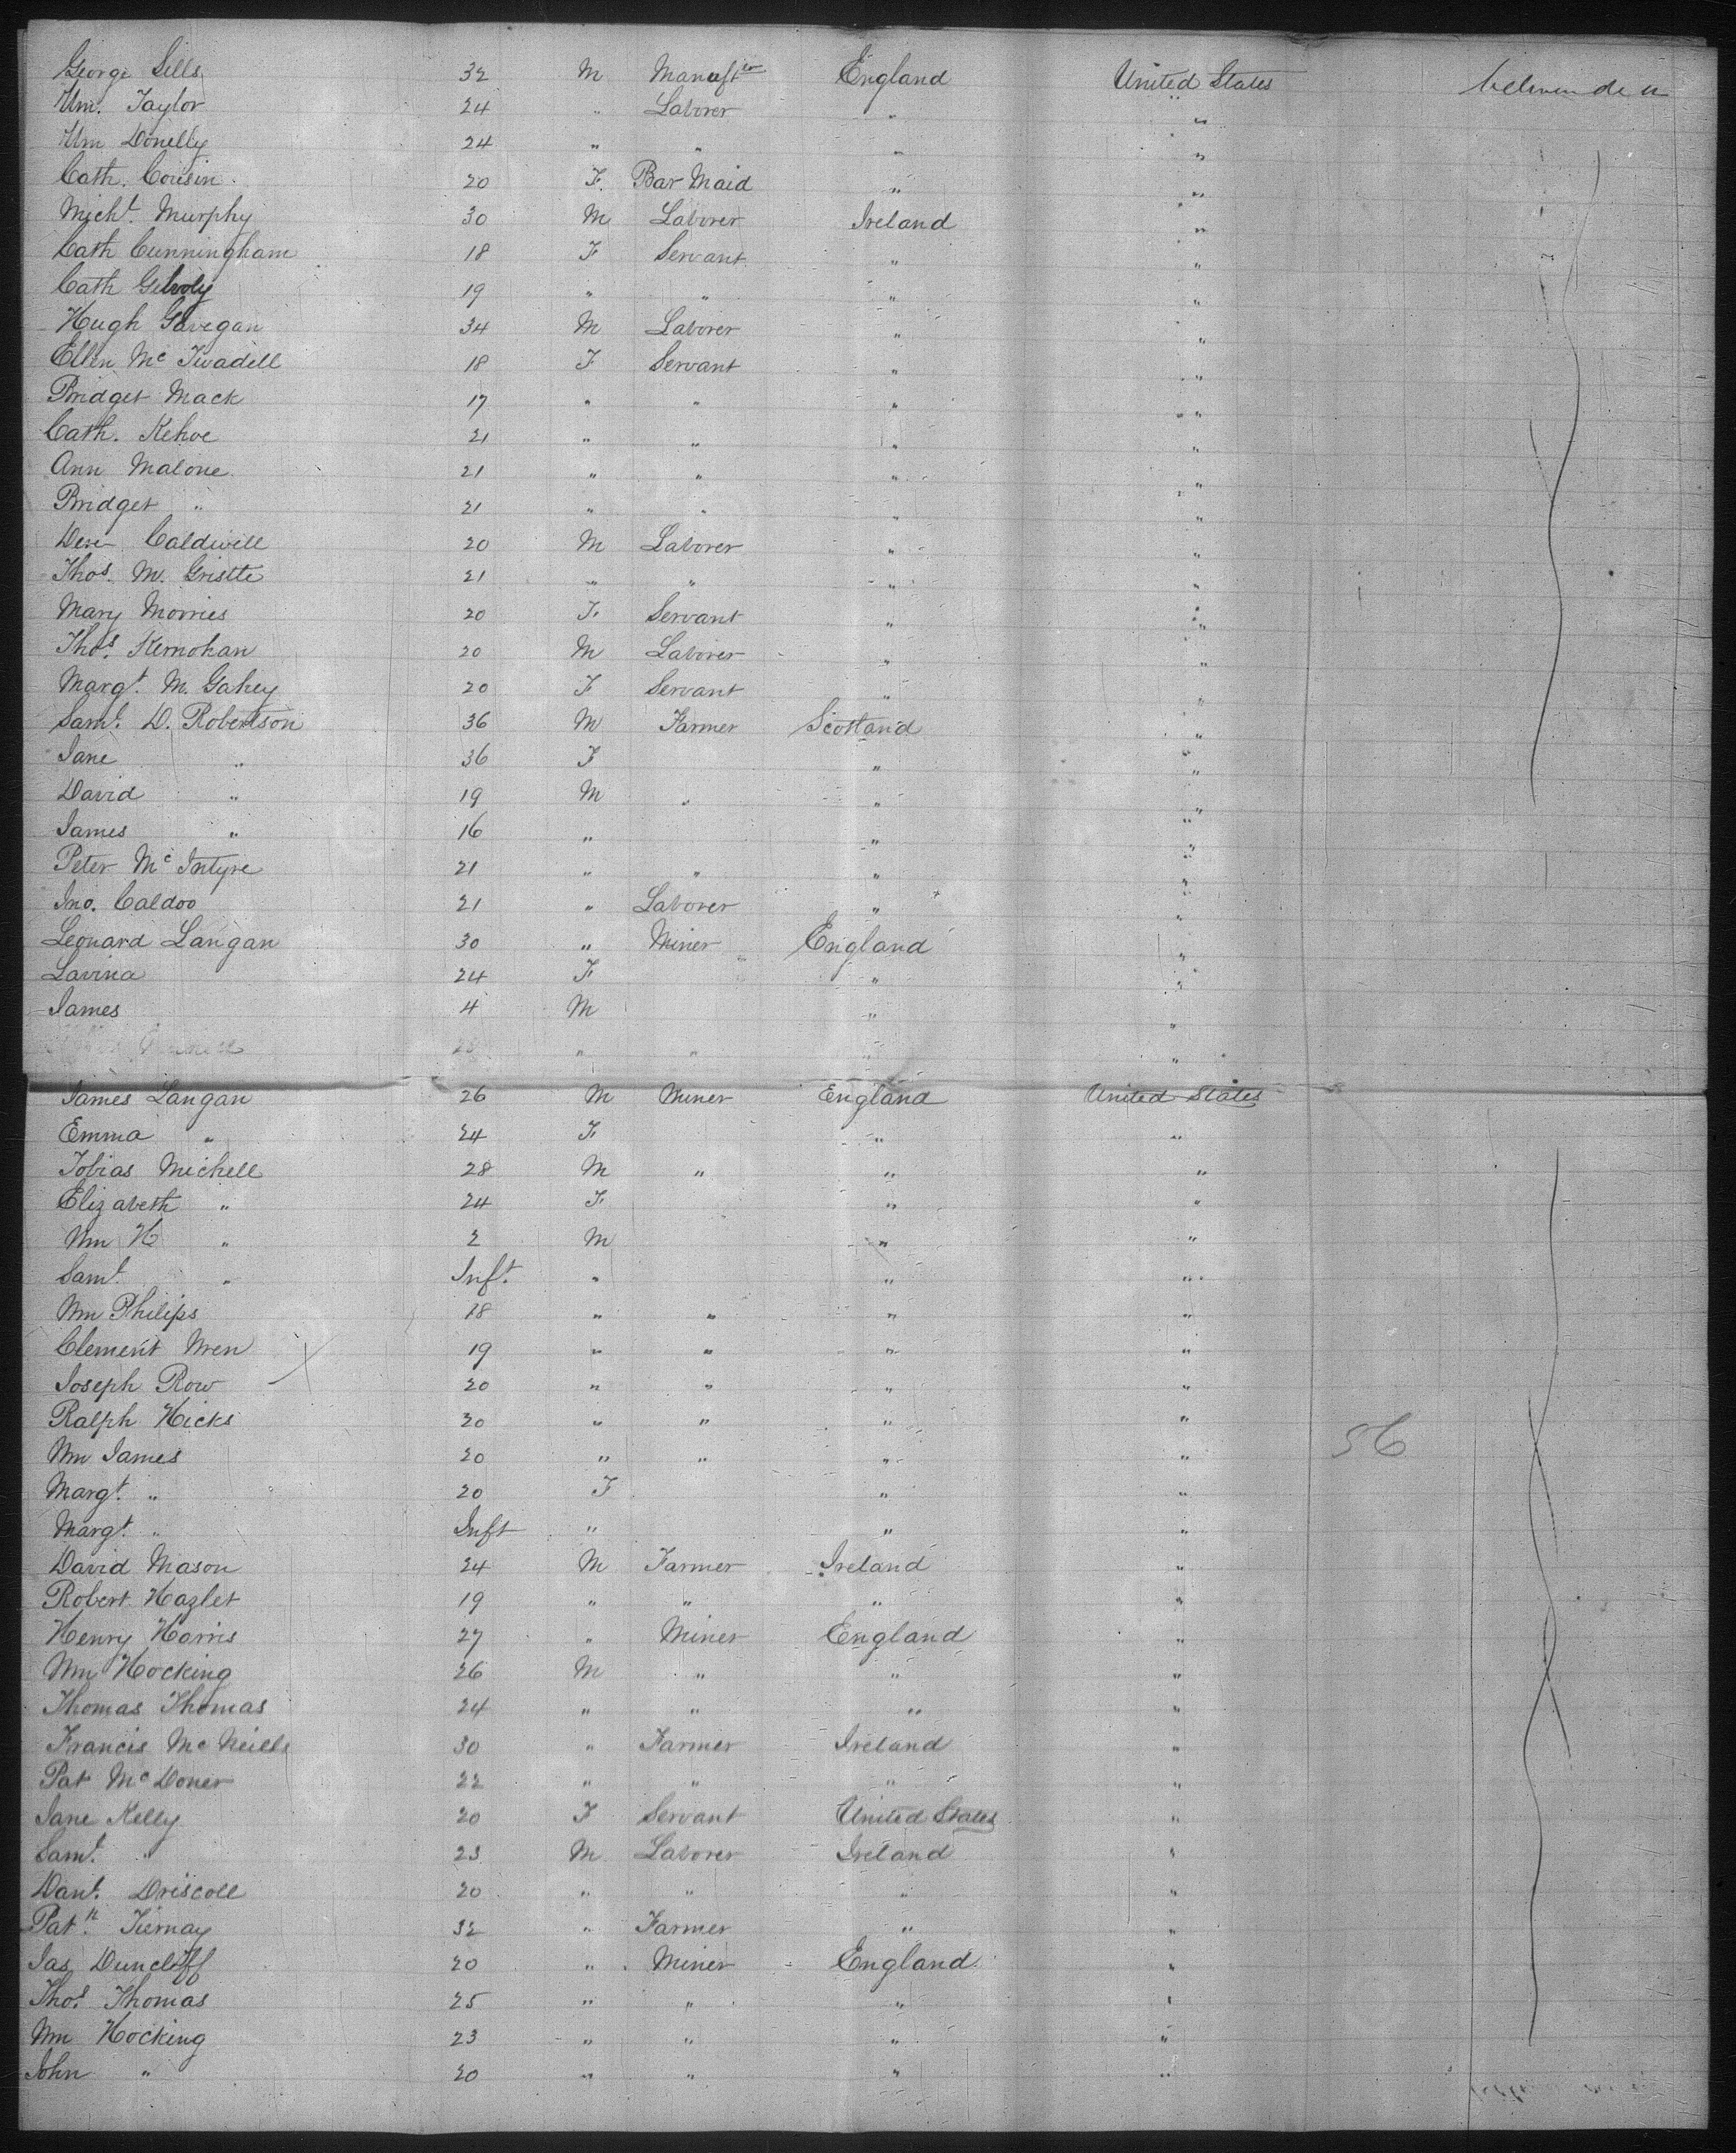 George Sills 32 M Manuftr England United States
Wm. Taylor 24 " Laborer " "
Wm Donelly 24 " " " "
Cath. Cousin 20 F. Bar Maid " "
Micht. Murphy 30 M Laborer Ireland "
Cath Cunningham 18 F Servant " "
Cath 19 " " " "
Hugh Gavegan 34 M Laborer " "
Ellen Mc Twadell 18 F Servant " "
Bridget Mack 17 " " " "
Cath. Kehoe 21 " " " "
Ann Malone 21 " " " "
Bridget " 21 " " " "
Caldwell 20 M Laborer " "
Thos. M. Gristte 21 " " " "
Mary Morries 20 F Servant " "
Thos. Kernohan 20 M Laborer " "
Margt. M. Gahey 20 F Servant " "
Saml. D. Robertson 36 M Farmer Scotland "
Jane " 36 F " "
David " 19 M " " "
James " 16 " " "
Peter Mc Intyre 21 " " " "
Jno. Caldoo 21 " Laborer " "
Leonard Langan 30 " Miner England "
Lavina 24 F " "
James 4 M " "
28 " " " "
James Langan 26 M Miner England United States
Emma " 24 F " "
Tobias Michell 28 M " " "
Elizabeth " 24 F " "
Wm H " 2 M " "
Saml. " Inft. " " "
Wm Philips 18 " " " "
Clement Wren 19 " " " "
Joseph Row 20 " " " "
Ralph Hicks 20 " " " "
Wm James 20 " " " " 56
Margt. " 20 F " "
Margt. " Inft " " "
David Mason 24 M Farmer Ireland "
Robert Hazlet 19 " " " "
Henry Harris 27 " Miner England "
Wm Hocking 26 M " " "
Thomas Thomas 24 " " " "
Francis Mc Neills 30 " Farmer Ireland "
Pat Mc Doner 22 " " " "
Jane Kelly 20 F Servant United States "
Saml. " 23 M Laborer Ireland "
Danl. Driscoll 20 " " " "
Patk. Tiernay 32 " Farmer " "
Jas Duncliff 20 " Miner England "
Thos. Thomas 25 " " " "
Wm Hocking 23 " " " "
John " 20 " " " "